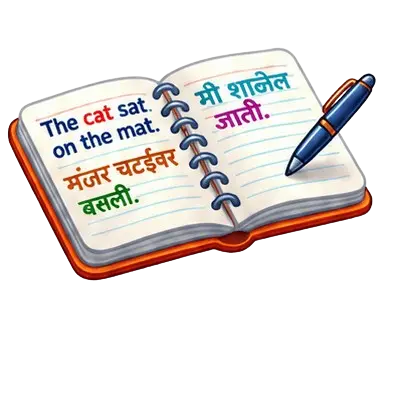 The cat sat.
on the mat.
मंजर चटईवर
बसली.
मी शानेल
जाती.